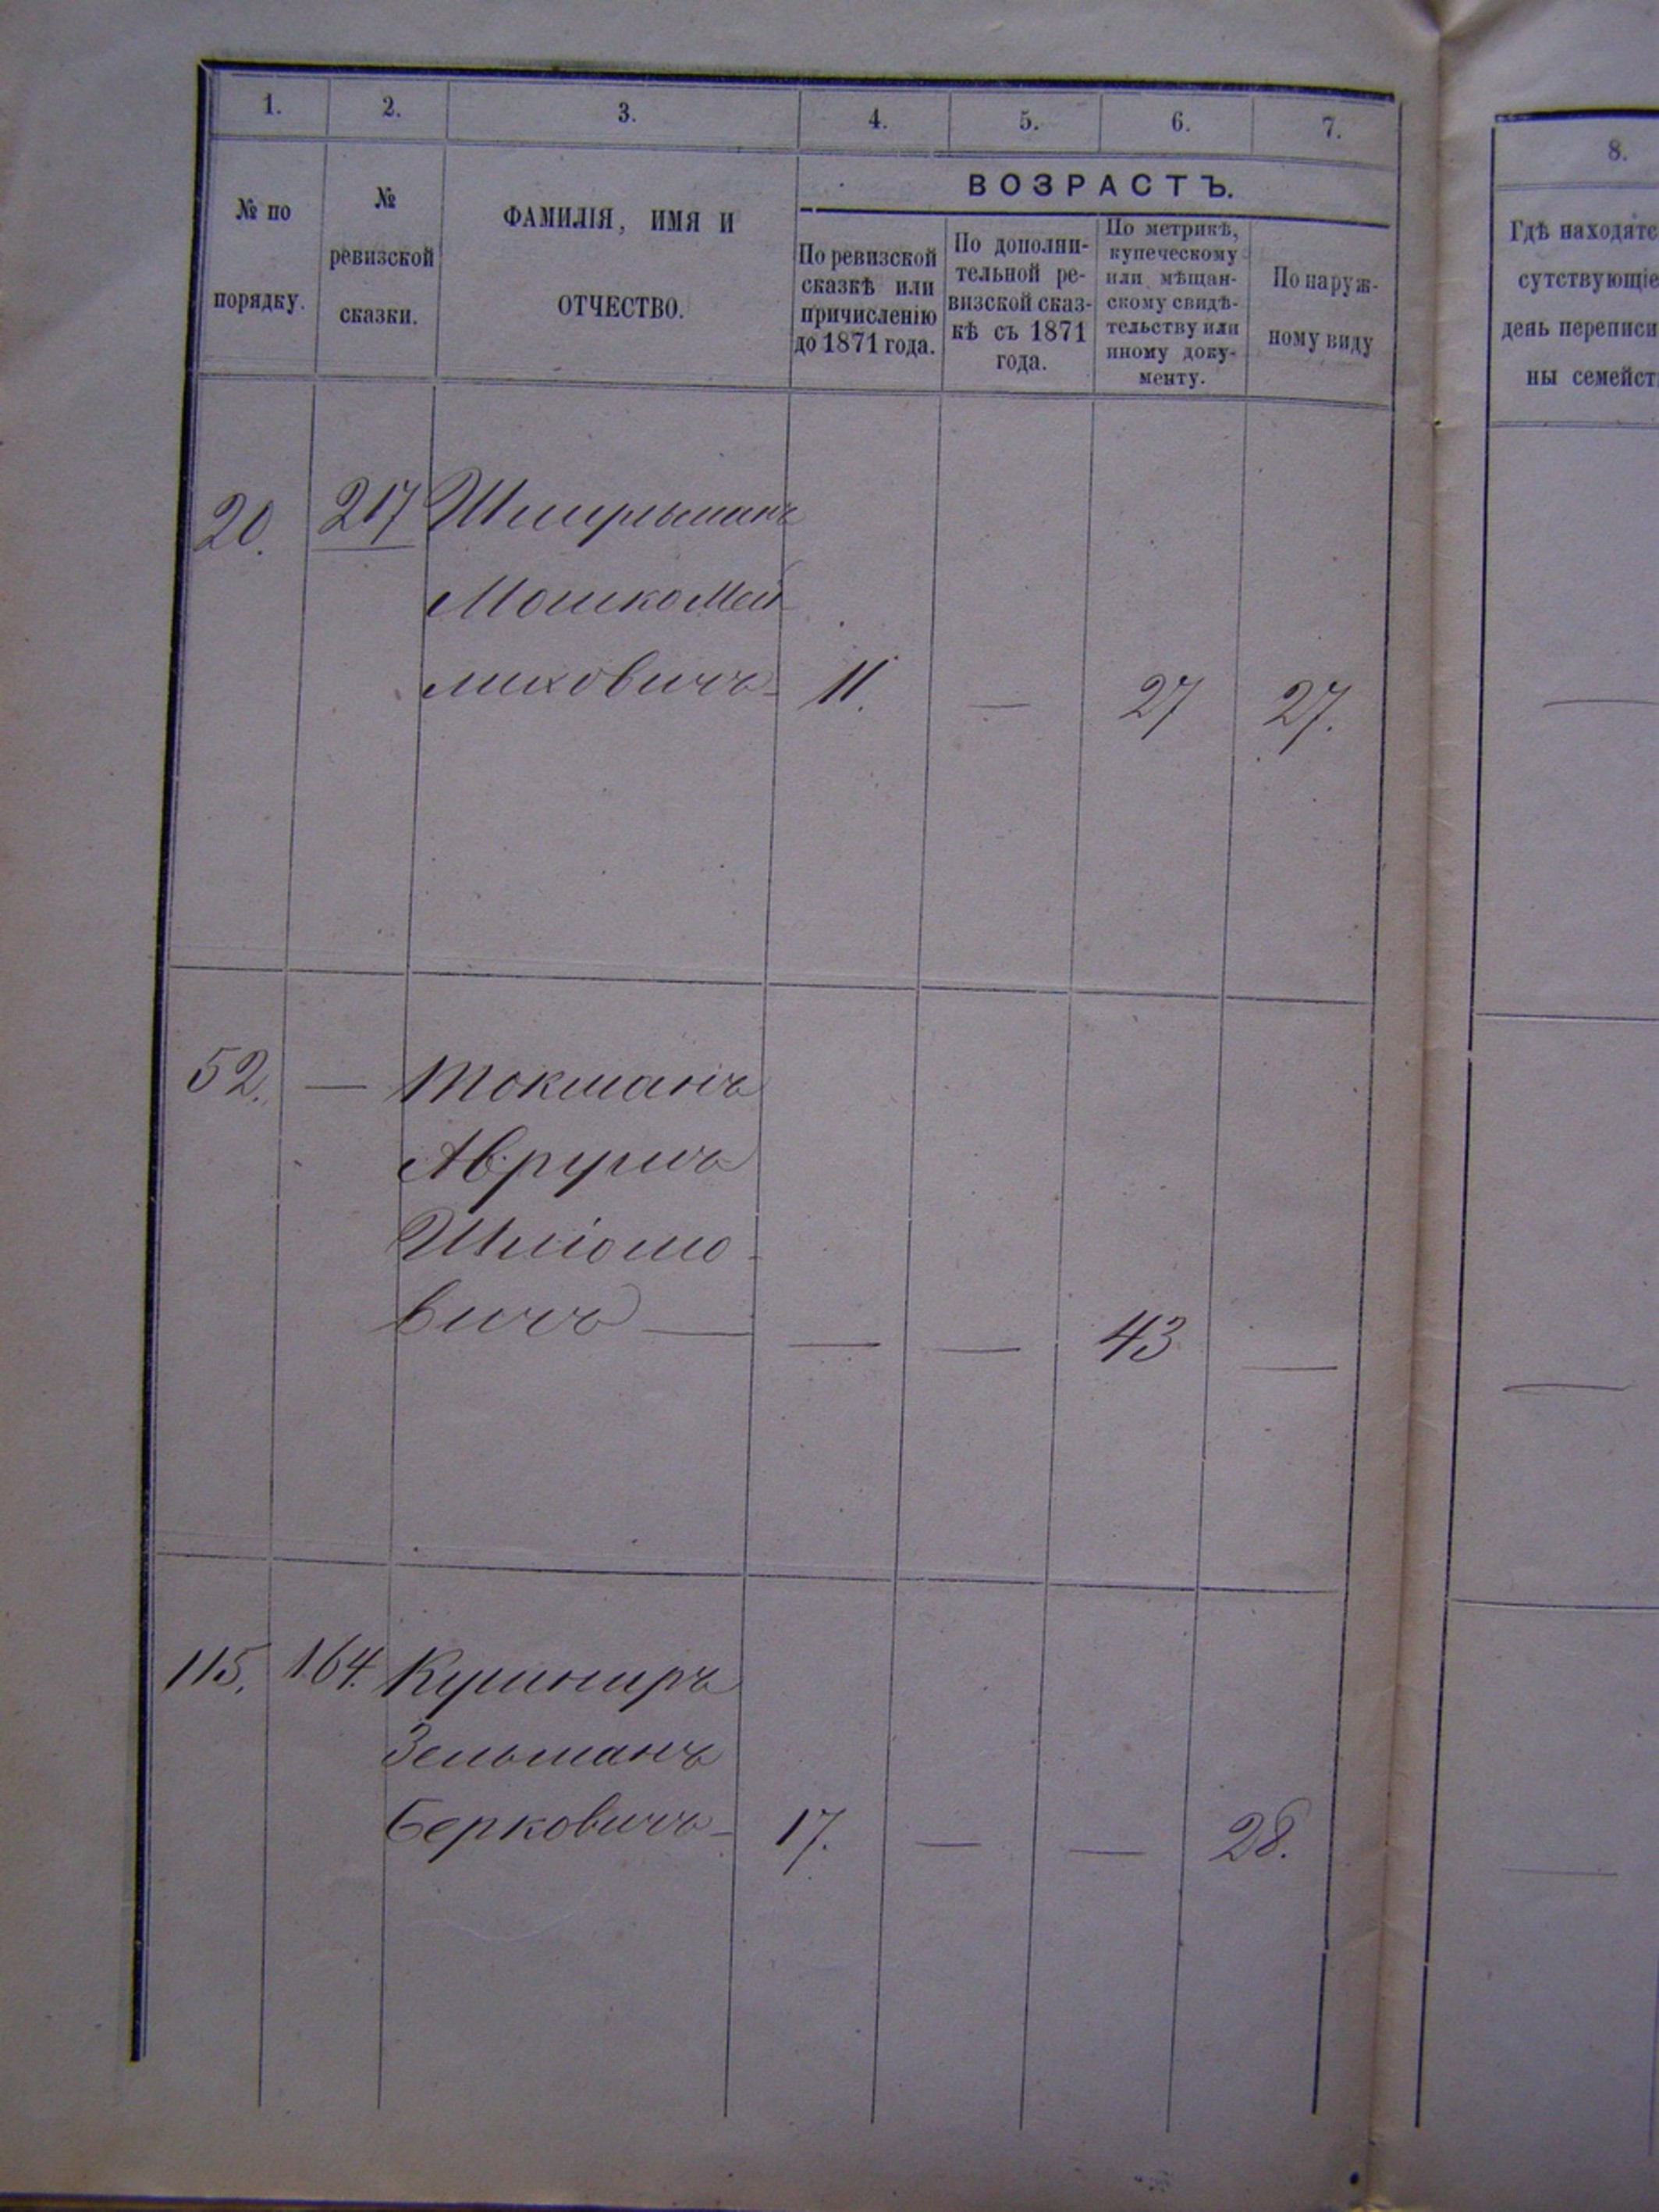 1. 2. 3. 4. 5. 6. 7.
№ по
порядку.
№
ревизской
сказки.
ФАМИЛІЯ, ИМЯ И
ОТЧЕСТВО.
ВОЗРАСТЪ.
По ревизской
сказкѣ или
причисленію
до 1871 года.
По дополни-
тельной ре-
визской сказ-
кѣ съ 1871
года.
По метрикѣ,
купеческому
или мѣщан-
скому свидѣ-
тельству или
иному доку-
менту.
По наруж-
ному виду
8.
Гдѣ находятс
сутствующіе
день переписи
ны семейст
20. 217
Мошко Мей
лиховичъ- 11. — 27 27. —
52. — Токманъ
Аврумъ
Шліомо-
вичъ — — — 43 — —
115. 164. Кушниръ
Зельманъ
Берковичъ- 17. — — 28. —